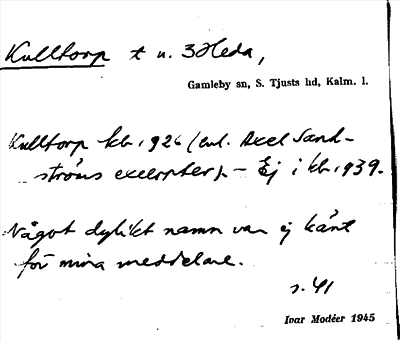 Kulltorp t u. 3 Heda,
Gamleby sn, S. Tjusts hd, Kalm. l.
Kulltorp kb. 1926 (enl. Axel Sand-
ströms excerpter). – Ej i kb. 1939.
Något dylikt namn var ej känt
för mina meddelare.
s. 41
Ivar Modéer 1945